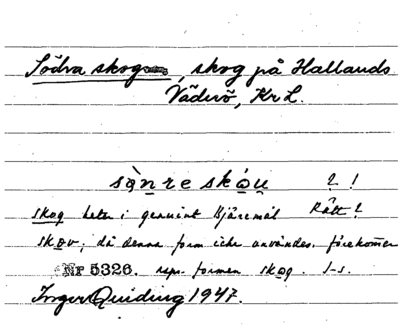 Södra skog, skog på Hallands
Väderö, Kr L.
sǫ̀n re skǫu ? !
skog heter i genuint Bjäremål Rätt?
skov; då denna form icke användes, förekommer
Nr 5326. resp. formen skog. I-s.
Inger Quiding 1947.